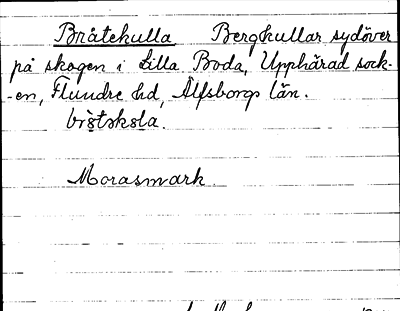 Bråtekulla Bergkullar sydöver
på skogen i Lilla Boda, Upphärad sock-
-en, Flundre hd, Älfsborgs län.
Morasmark